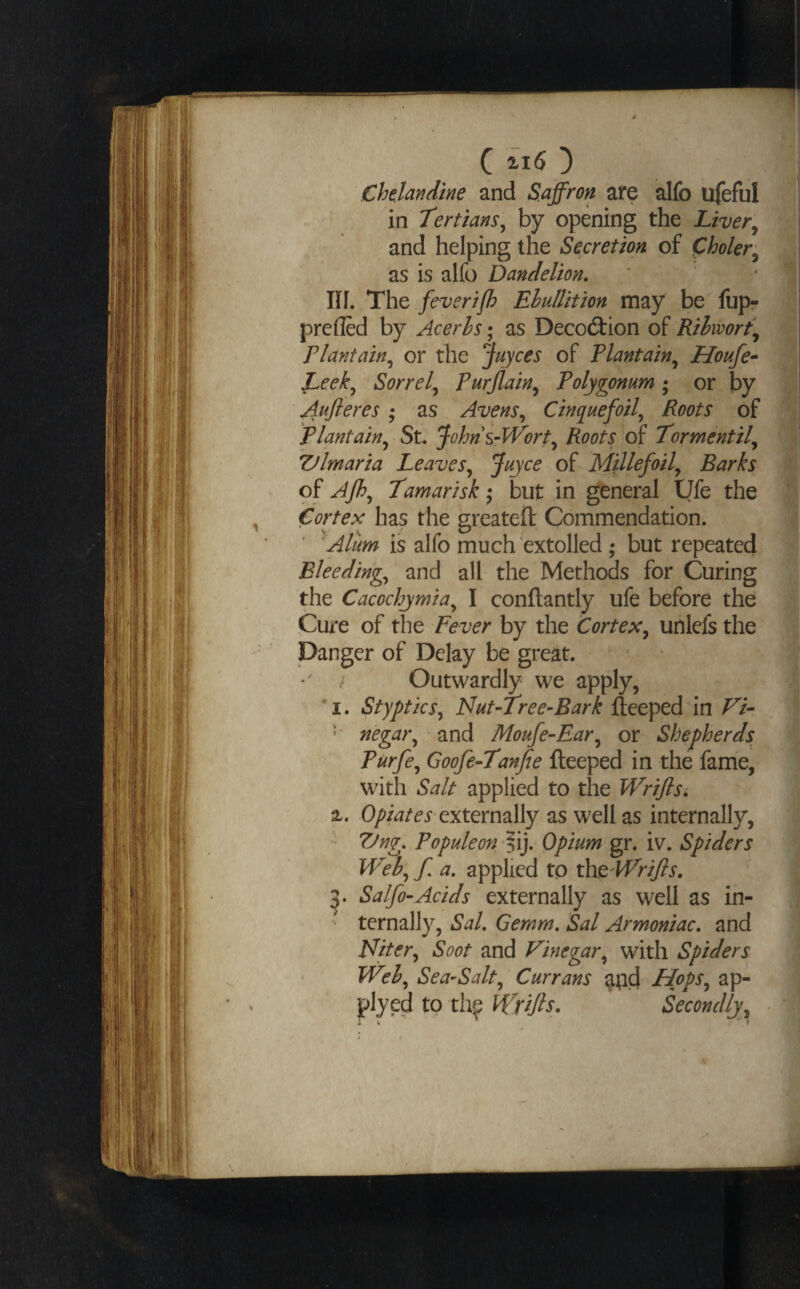 ( 216 )
Chelandine and Saffron are alſo uſeful
in Tertians, by opening the Liver,
and helping the Secretion of Choler,
as is alſo Dandelion.
III. The feveriſh Ebullition may be ſup-
preſſed by Acerbs; as Decoction of Ribwort,
Plantain, or the Juyces of Plantain, Houſe-
Leek, Sorrel, Purſlain, Polygonum; or by
Auſteres; as Avens, Cinquefoil, Roots of
Plantain, St. John's-Wort, Roots of Tormentil,
Ulmaria Leaves, Juyce of Millefoil, Barks
of Aſh, Tamarisk; but in general Uſe the
Cortex has the greateſt Commendation.
Alum is alſo much extolled; but repeated
Bleeding, and all the Methods for Curing
the Cacochymia, I conſtantly uſe before the
Cure of the Fever by the Cortex, unleſs the
Danger of Delay be great.
Outwardly we apply,
1. Styptics, Nut-Tree-Bark ſteeped in Vi-
negar, and Mouſe-Ear, or Shepherds
Purſe, Gooſe-Tanſie ſteeped in the ſame,
with Salt applied to the Wriſts.
2. Opiates externally as well as internally,
Ung. Populeon ℥ij. Opium gr. iv. Spiders
Web, ſ. a. applied to the Wriſts.
3. Salſo-Acids externally as well as in-
ternally, Sal. Gemm. Sal Armoniac. and
Niter, Soot and Vinegar, with Spiders
Web, Sea-Salt, Currans and Hops, ap-
plyed to the Wriſts. Secondly,